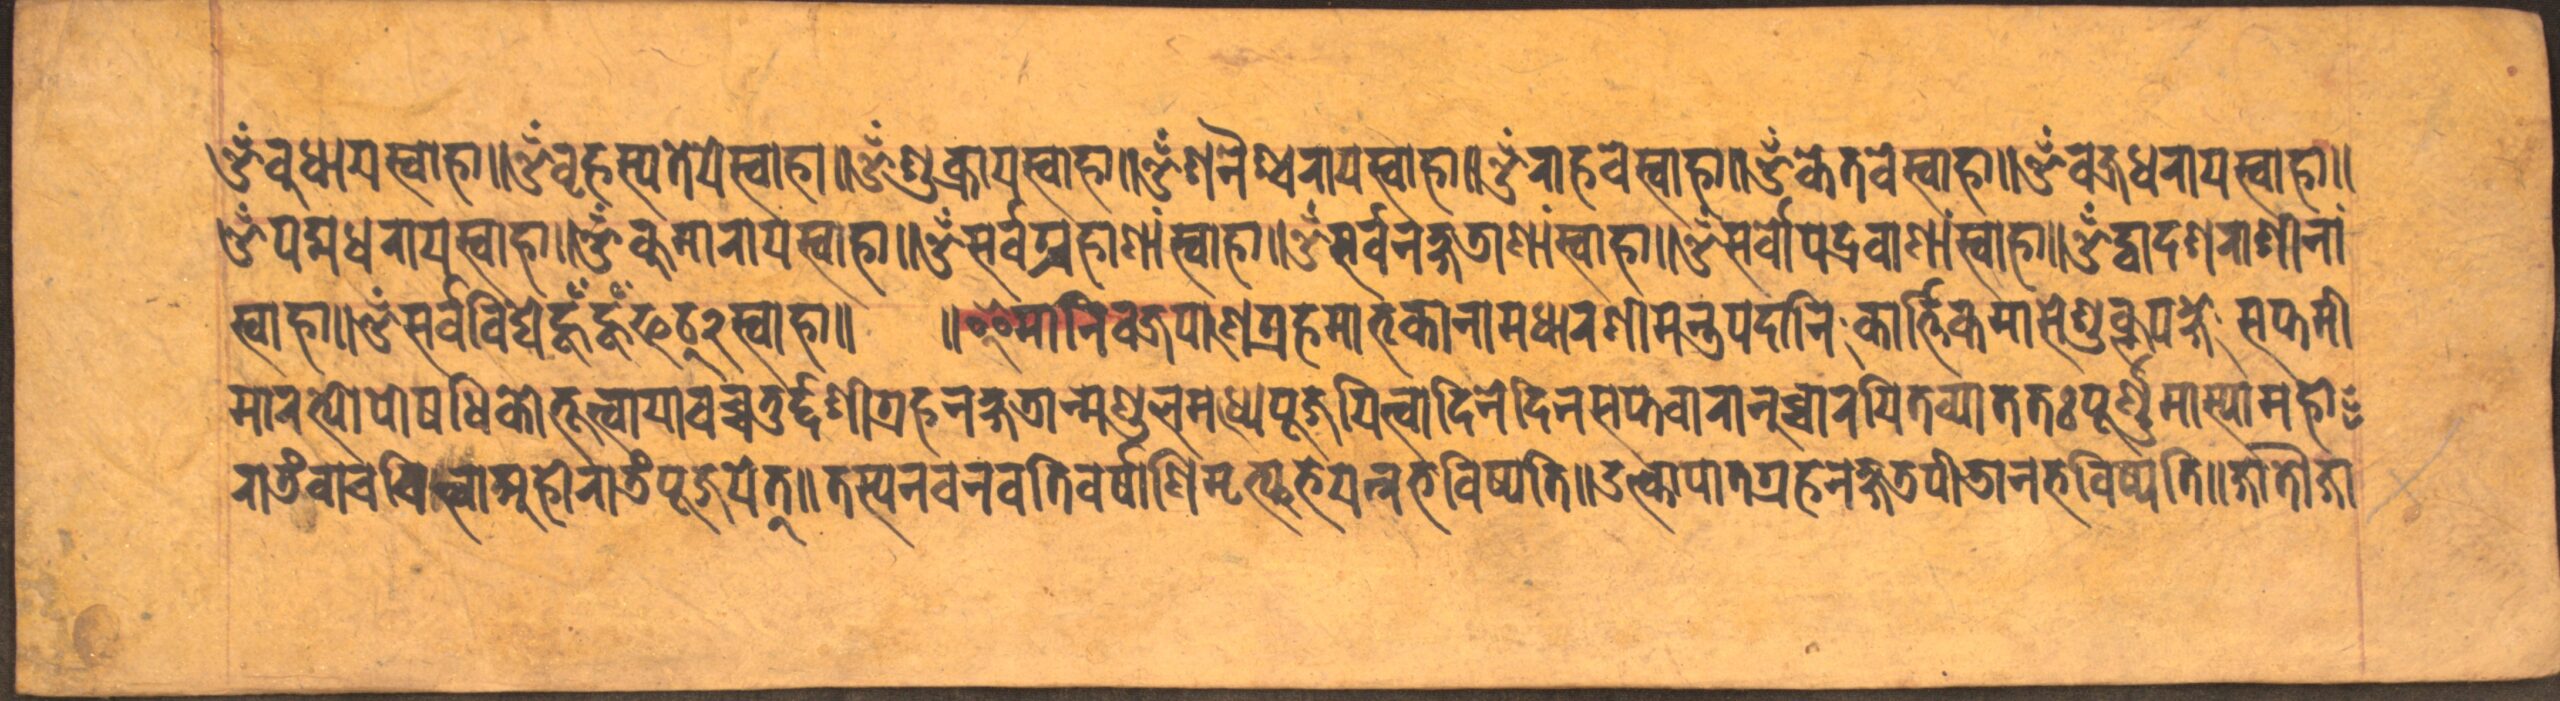 ॐ बुधाय स्वाहा॥ ॐ वृहस्पतेये स्वाहा॥ ॐ शुक्राय स्वाहा॥ ॐ शनैश्चराय स्वाहा॥ ॐ राहवे स्वाहा॥ ॐ केतवे स्वाहा॥ ॐ वज्रधराय स्वाहा॥
ॐ पद्मधराय स्वाहा॥ ॐ कुमाराय स्वाहा॥ ॐ सर्वग्रहाणां स्वाहा॥ ॐ सर्वनक्षत्राणां स्वाहा॥ ॐ सर्वोपद्रवाणां स्वाहा॥ ॐ द्वादशराशीनां
स्वाहा॥ ॐ सर्वविद्ये हूँ हूँ फट् २ स्वाहा॥ ॥ इमानि वज्रपाणे ग्रहमातृकानामधारणी मन्त्रपदानि कार्त्तिकमासे शुक्लपक्षे सप्तमी
मारभ्योपोषधिको भूत्वा यावच्चतुर्द्दशी ग्रहनक्षत्रान्मण्डलमध्ये पूजयित्वा दिने दिन सप्तवारानुच्चारयितव्या ततः पूर्ण्णमास्यामहो
रात्रं वाचयित्वा अहोरात्रं पूजयेत्॥ तस्य नवनवतिवर्षाणि मृत्युभयन्न भविष्यति॥ उल्कापातग्रहनक्षत्रपीडा न भविष्यति॥ जातौ जा